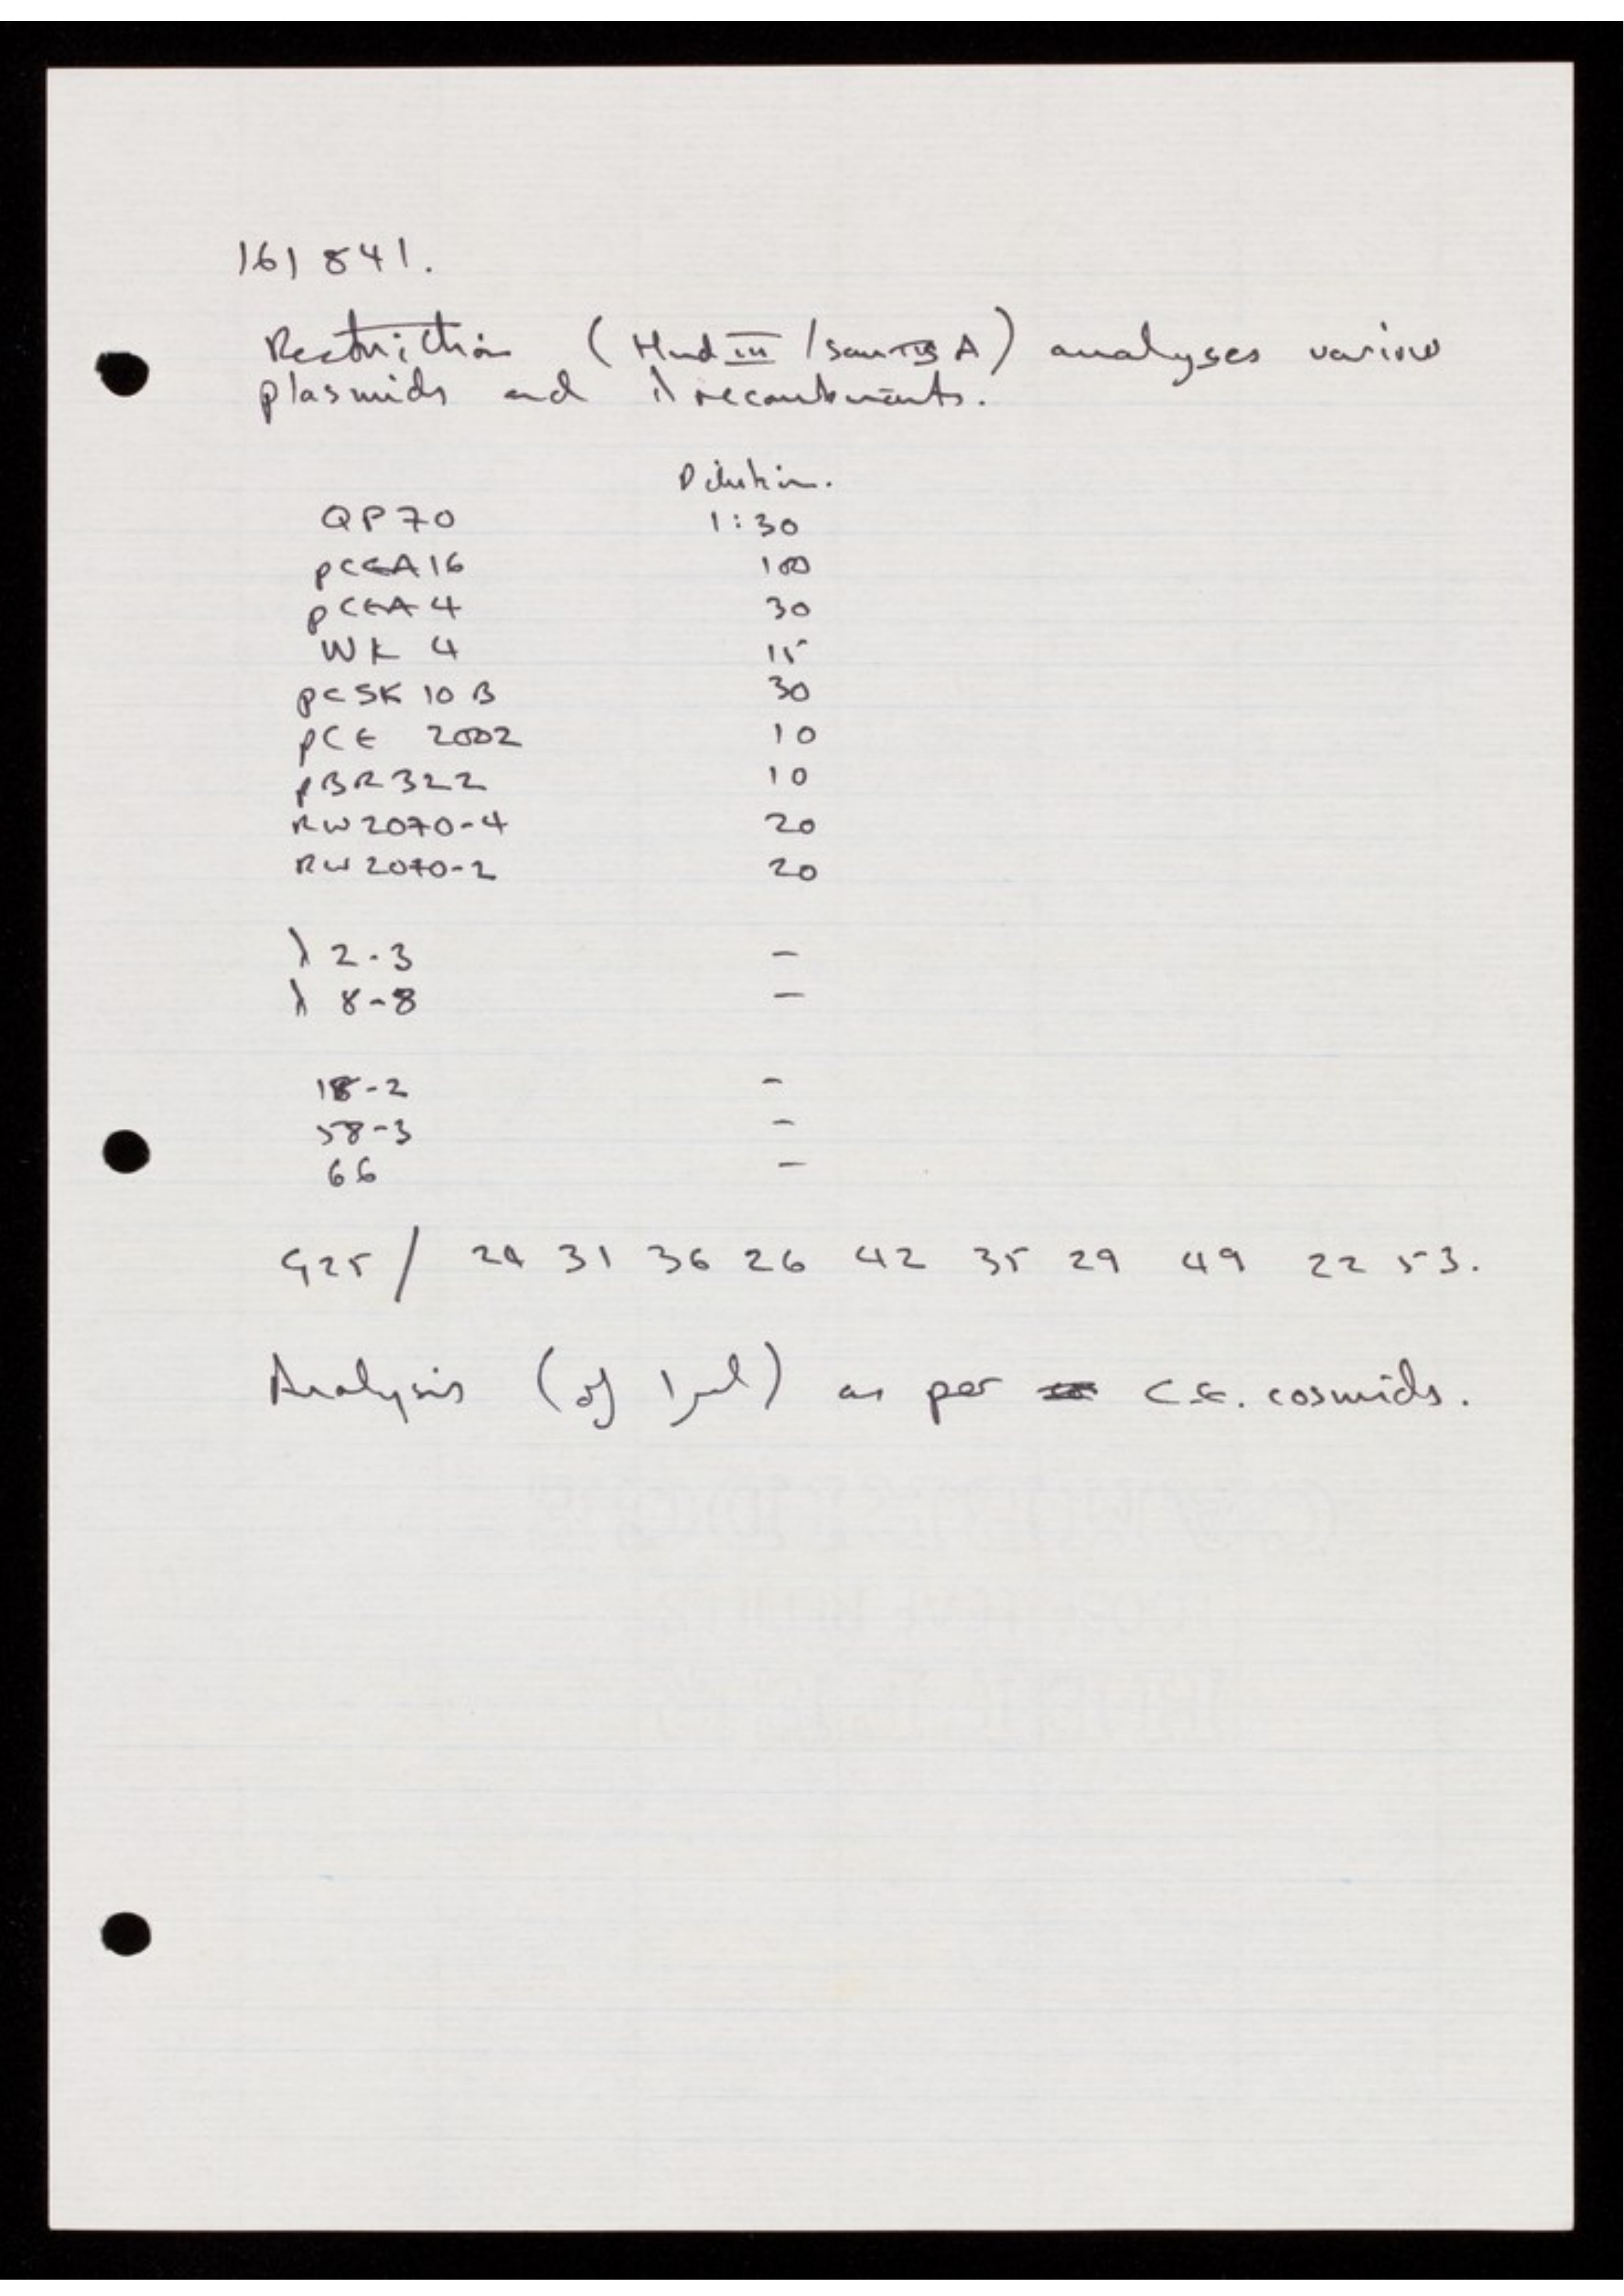 161841.
Restriction (Hind III / Sau A) analyses various
plasmids and λ recombinants.
Dilution.
QP70 1:30
pCEA16 100
pCEA4 30
WK 4 15
pCSK 10 B 30
pCE 2002 10
pBR322 10
RW2070-4 20
RW2070-2 20
λ 2-3 –
λ 8-8 –
18-2 –
58-3 –
66 –
G25 / 31 36 26 42 35 29 49 22 53.
Analysis (of 1μl) as per C.E. cosmids.